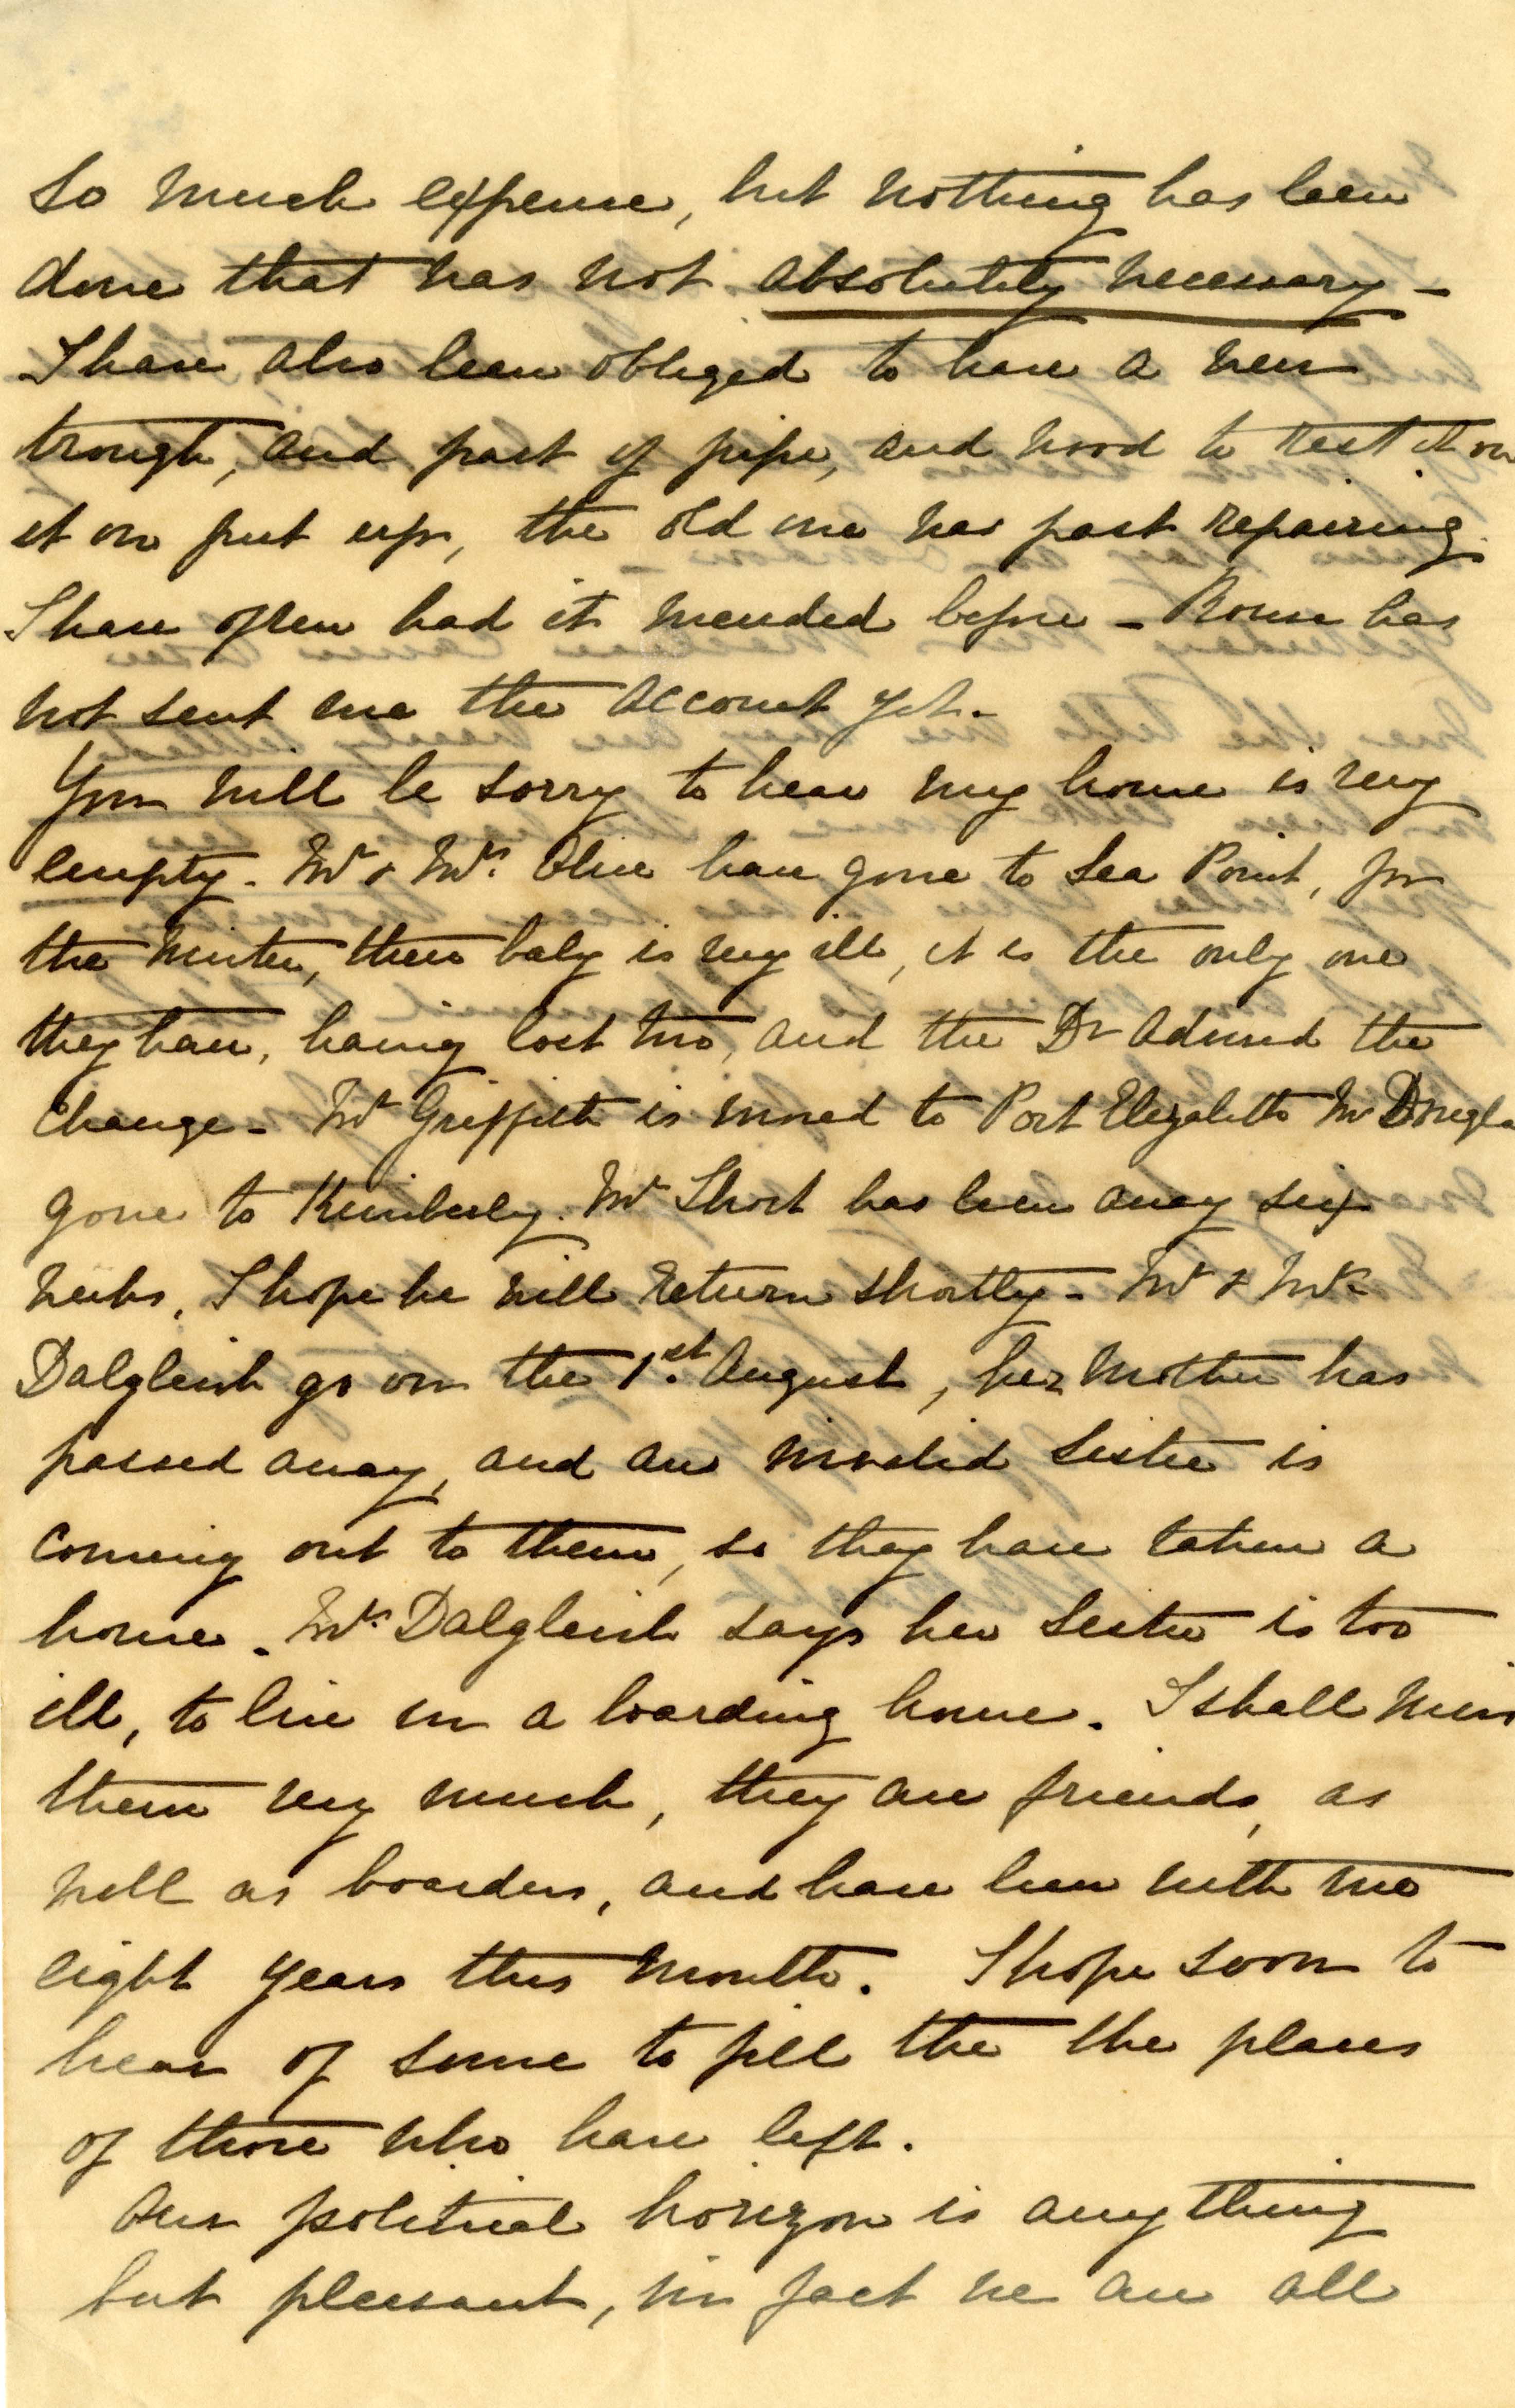 so much expense, but nothing has been
done that was not absolutely necessary -
I have also been obliged to have a new
trough, and part of pipe, and wood to rest it on
it on put up, the old one was past repairing.
I have often had it mended before - Rouse has
not sent me the account yet.
You will be sorry to hear my house is very
empty. Mr & Mrs. Olive have gone to Sea Point, for
the winter, their baby is very ill, it is the only one
they have, having lost two, and the Dr advised the
change - Mr Griffith is moved to Port Elizabeth Mr Dougla
gone to Kimberly. Mr Short has been away six
weeks, I hope he will return shortly - Mr & Mrs
Dalgleish go on the 1st. August, her Mother has
passed away, and an invalid sister is
coming out to them, so they have taken a
house. Mrs Dalgleish says her sister is too
ill, to live in a boarding house. I shall miss
them very much, they are friends, as
well as boarders, and have been with me
eight years this month. I hope soon to
hear of some to fill the the places
of those who have left.
Our political horizon is anything
but pleasant, in fact we are all